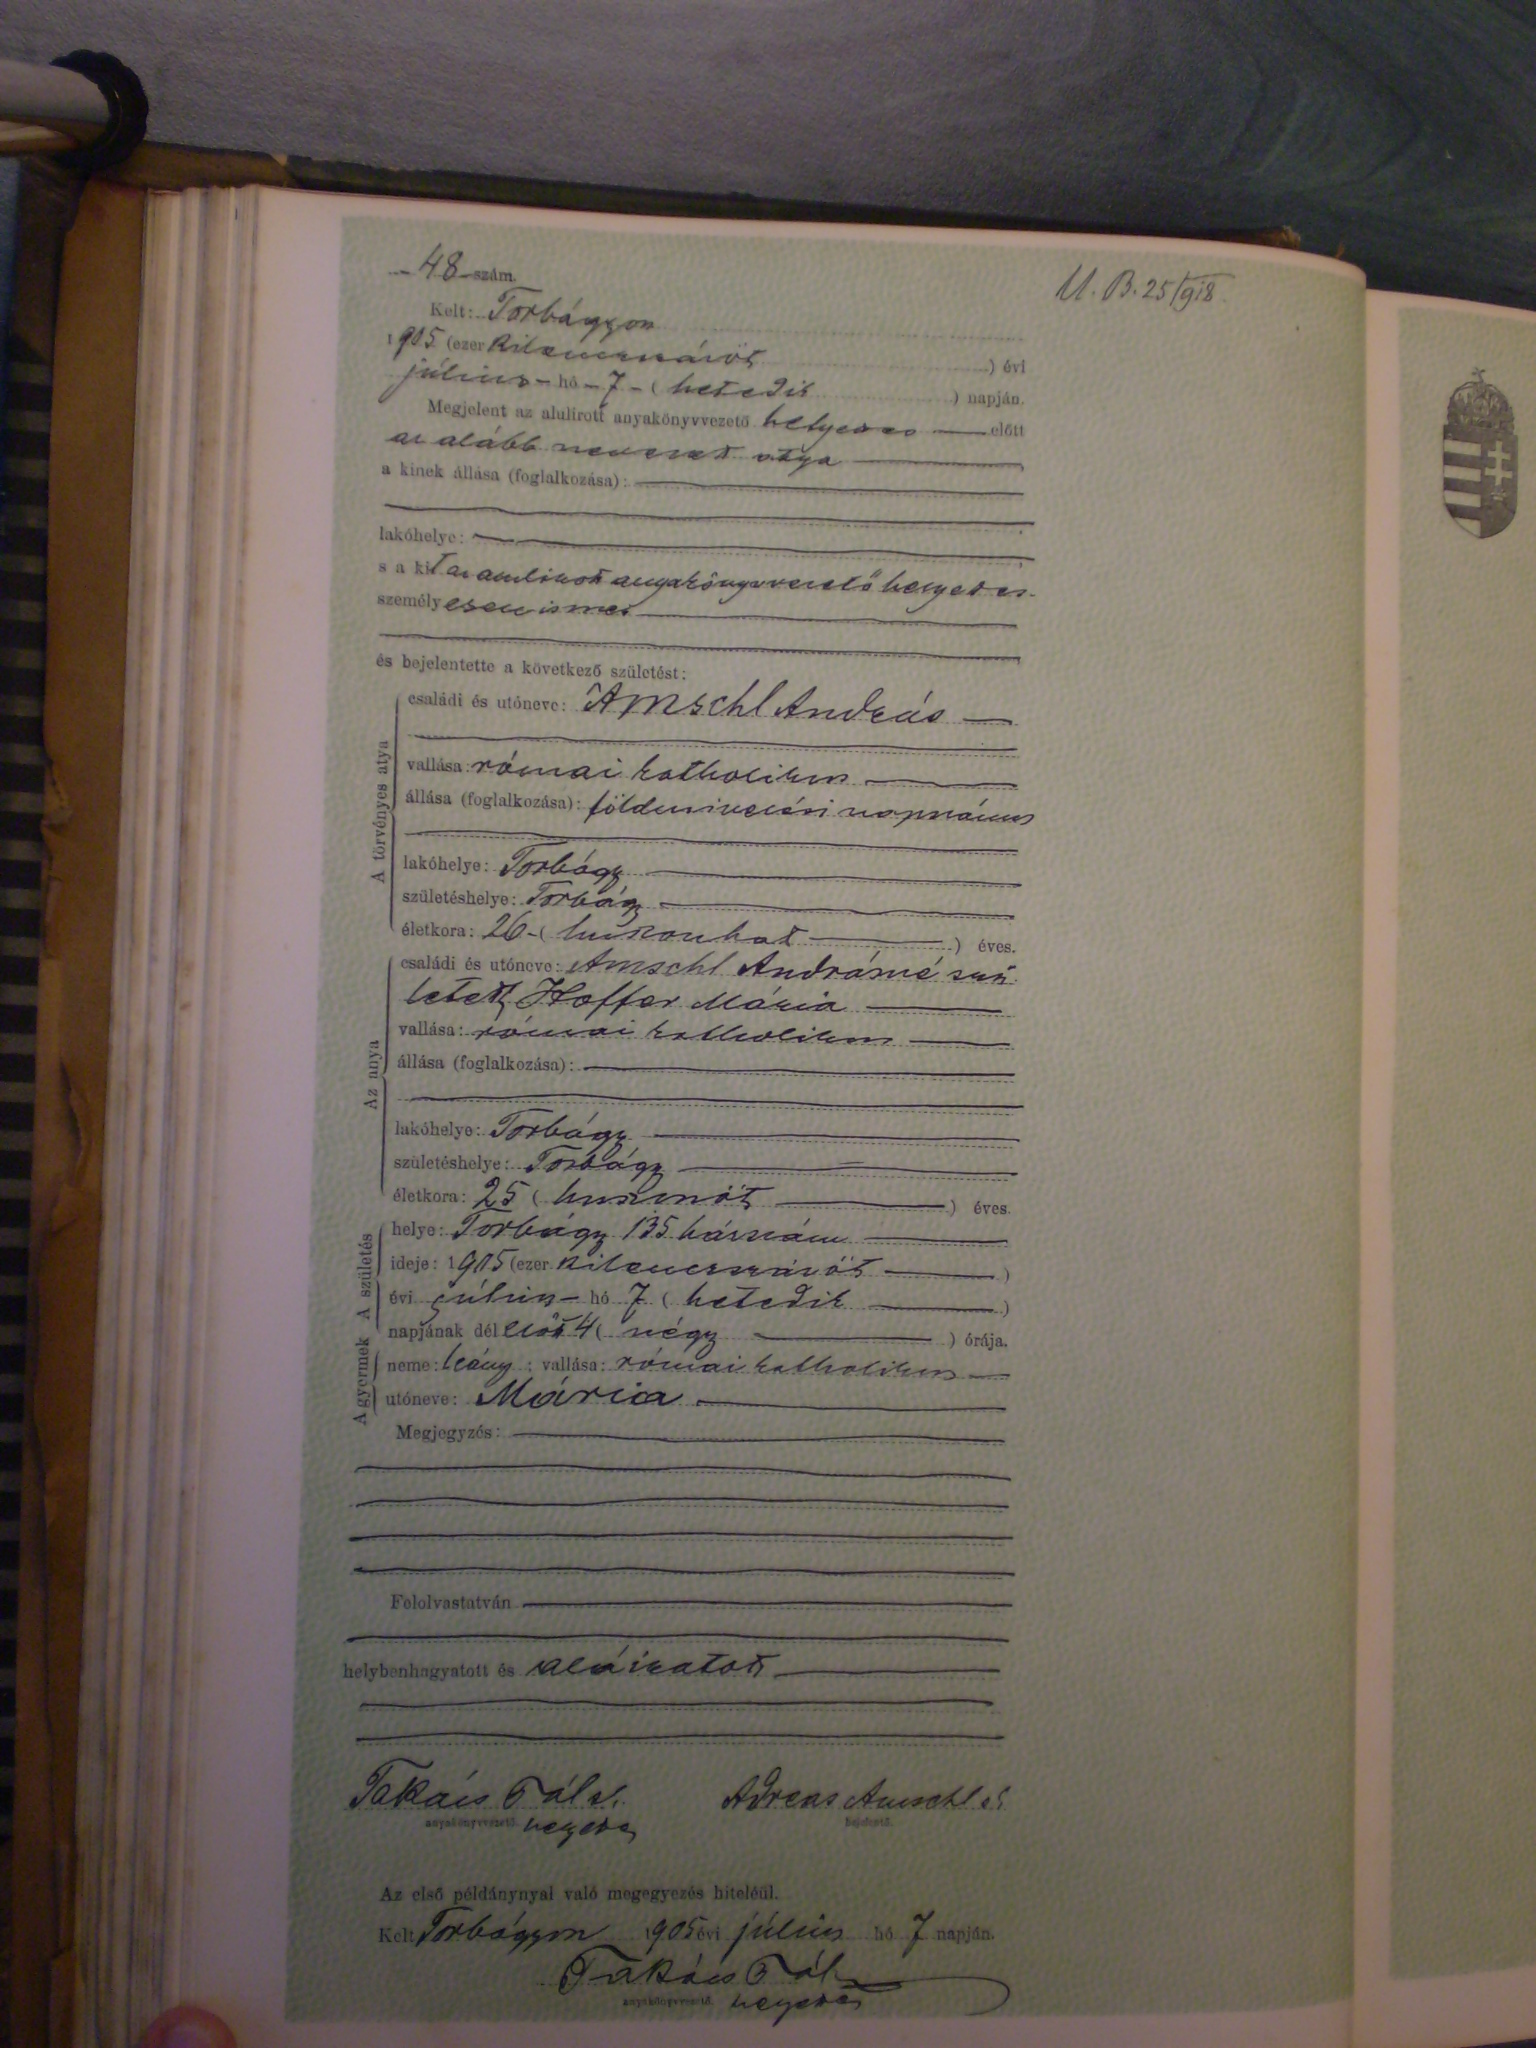 48 szám.
U. B. 25/918.
Kelt: Torbágyon
1905 (ezer kilenczszázöt ) évi
július hó 7 ( hetedik ) napján.
Megjelent az alulirott anyakönyvvezető helyettes előtt
az alább nevezett atya
a kinek állása (foglalkozása):
lakóhelye:
s a kit az alulirott anyakönyvvezető helyettes
személyesen ismer
és bejelentette a következő születést:
A törvényes atya
családi és utóneve: Amschl András
vallása: római katholikus
állása (foglalkozása): földmivelési napszámos
lakóhelye: Torbágy
születéshelye: Torbágy
életkora: 26 ( huszonhat ) éves.
Az anya
családi és utóneve: Amschl Andrásné szü-
letett Hoffer Mária
vallása: római katholikus
állása (foglalkozása):
lakóhelye: Torbágy
születéshelye: Torbágy
életkora: 25 ( huszonöt ) éves.
A születés
helye: Torbágy 135 házszám
ideje: 1905 (ezer kilenczszázöt )
évi július hó 7 ( hetedik )
napjának délelőtt 4 ( négy ) órája.
A gyermek
neme: leány ; vallása: római katholikus
utóneve: Mária
Megjegyzés:
Felolvastatván
helybenhagyatott és aláiratott
Takács Pál s.
Adreas Amschl
anyakönyvvezető. helyettes
bejelentő.
Az első példánynyal való megegyezés hiteléül.
Kelt Torbágyon 1905 évi július hó 7 napján.
Takács Pál
anyakönyvvezető. helyettes